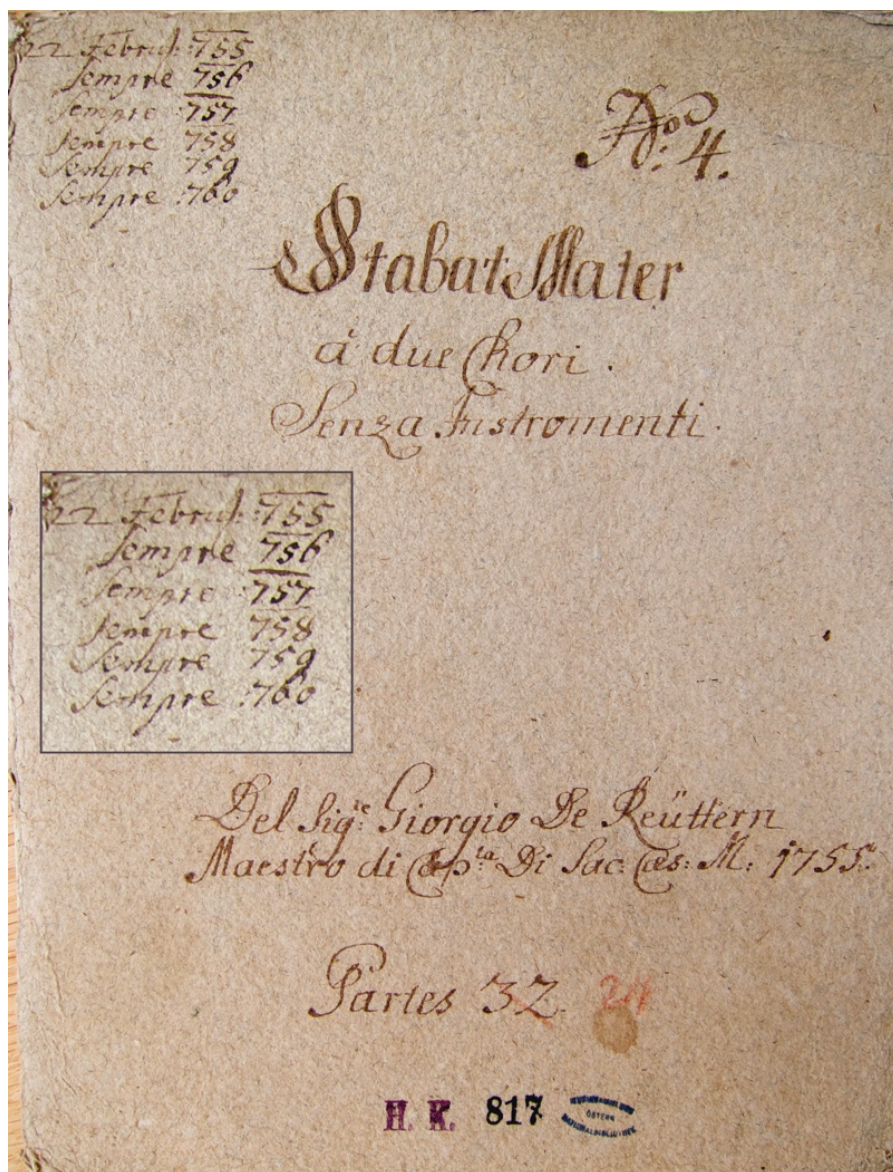 22 Febru: 755
Sempre 756
Sempre 757
Sempre 758
Sempre 759
Sempre 760
No: 4.
Stabat Mater
à due Chori.
Senza Instromenti.
22 Febru: 755
Sempre 756
Sempre 757
Sempre 758
Sempre 759
Sempre 760
Del Sig:re Giorgio De Reüttern
Maestro di Cap:la Di Sac: Cæs: M: 1755.
Partes 32. 24
H. K. 817
ÖSTERR.
NATIONALBIBLIOTHEK